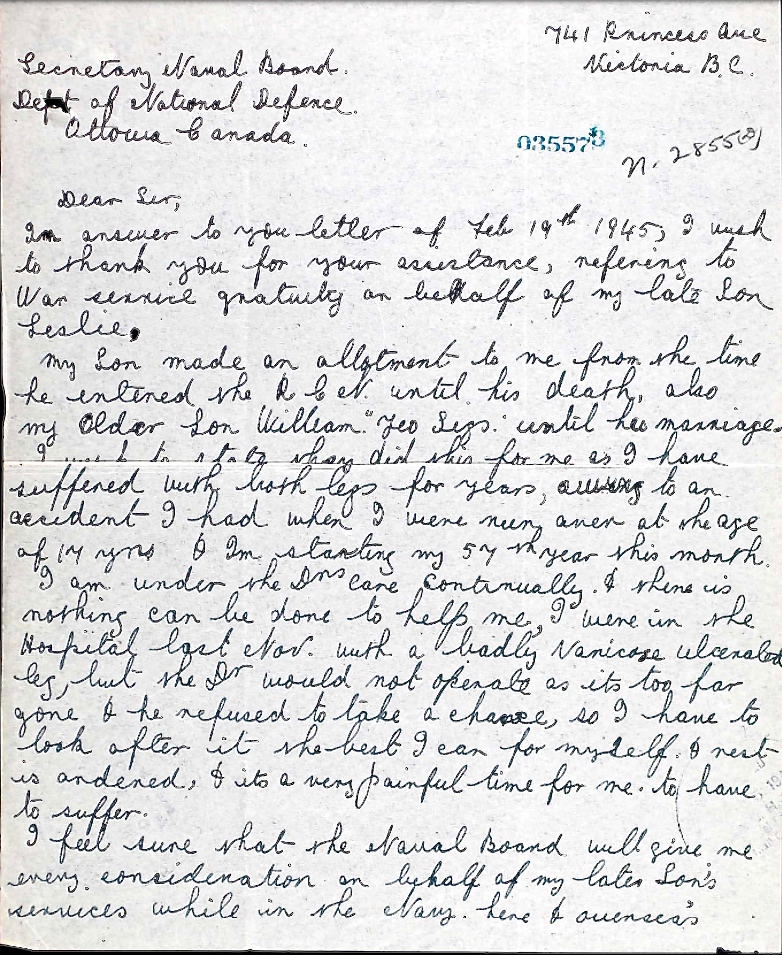 741 Princess Ave
Victoria B.C.
Secretary Naval Board.
Dept of National Defence.
Ottowa Canada.
035578
N. 2855
Dear Sir,
Im answer to you letter of Feb 19th 1945, I wish
to thank you for your assistance, refering to
War service gratuity on behalf of my late Son
Leslie.
My Son made an allotment to me from the time
he entered the R C N. until his death, also
my Older Son William "Yeo Sigs." until his marriage.
I wish to state they did this for me as I have
suffered with both legs for years, owing to an
accident I had when I were run over at the age
of 17 yrs & Im starting my 57th year this month.
I am under the Drs care continually. & there is
nothing can be done to help me, I were in the
Hospital last Nov. with a badly Varicose ulcerated
leg, but the Dr would not operate as its too far
gone & he refused to take a chance, so I have to
look after it the best I can for myself. & rest
is ordered, & its a very painful time for me. to have
to suffer.
I feel sure that the Naval Board will give me
every consideration on behalf of my late Son's
services while in the Navy. here & oversea's